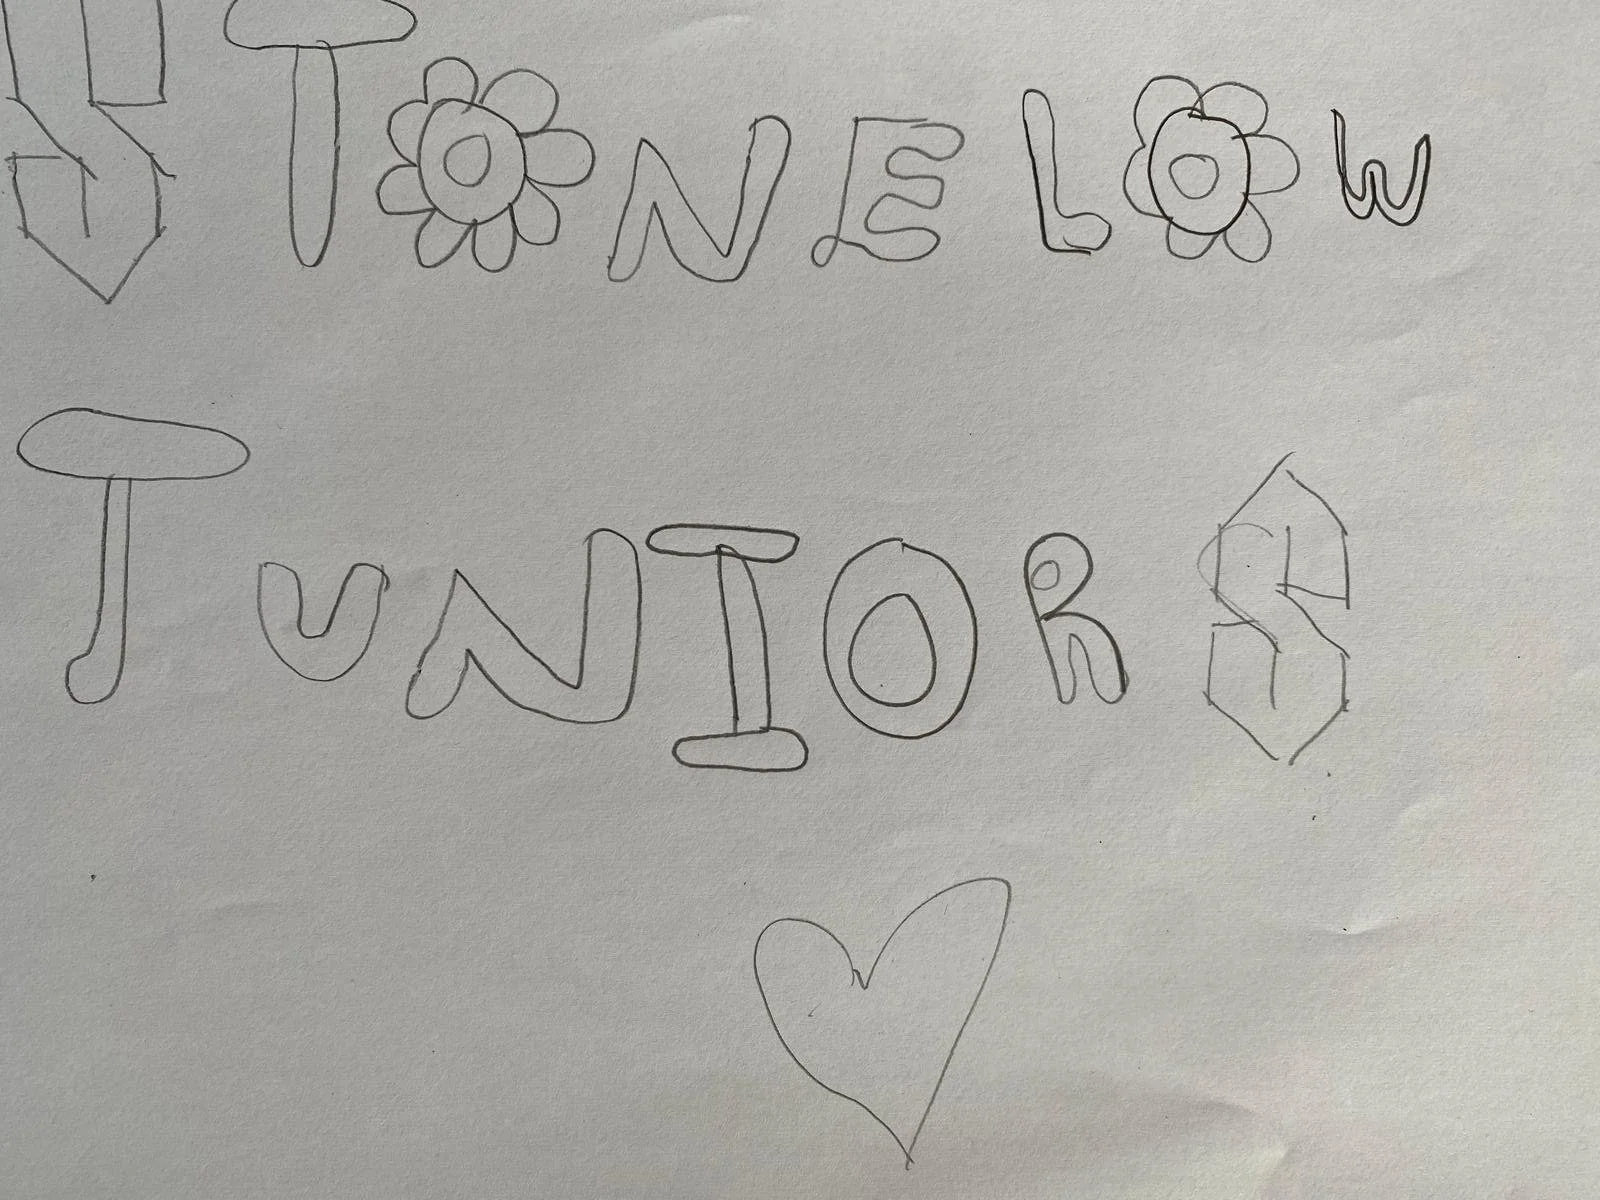 STONELOW
JUNIORS